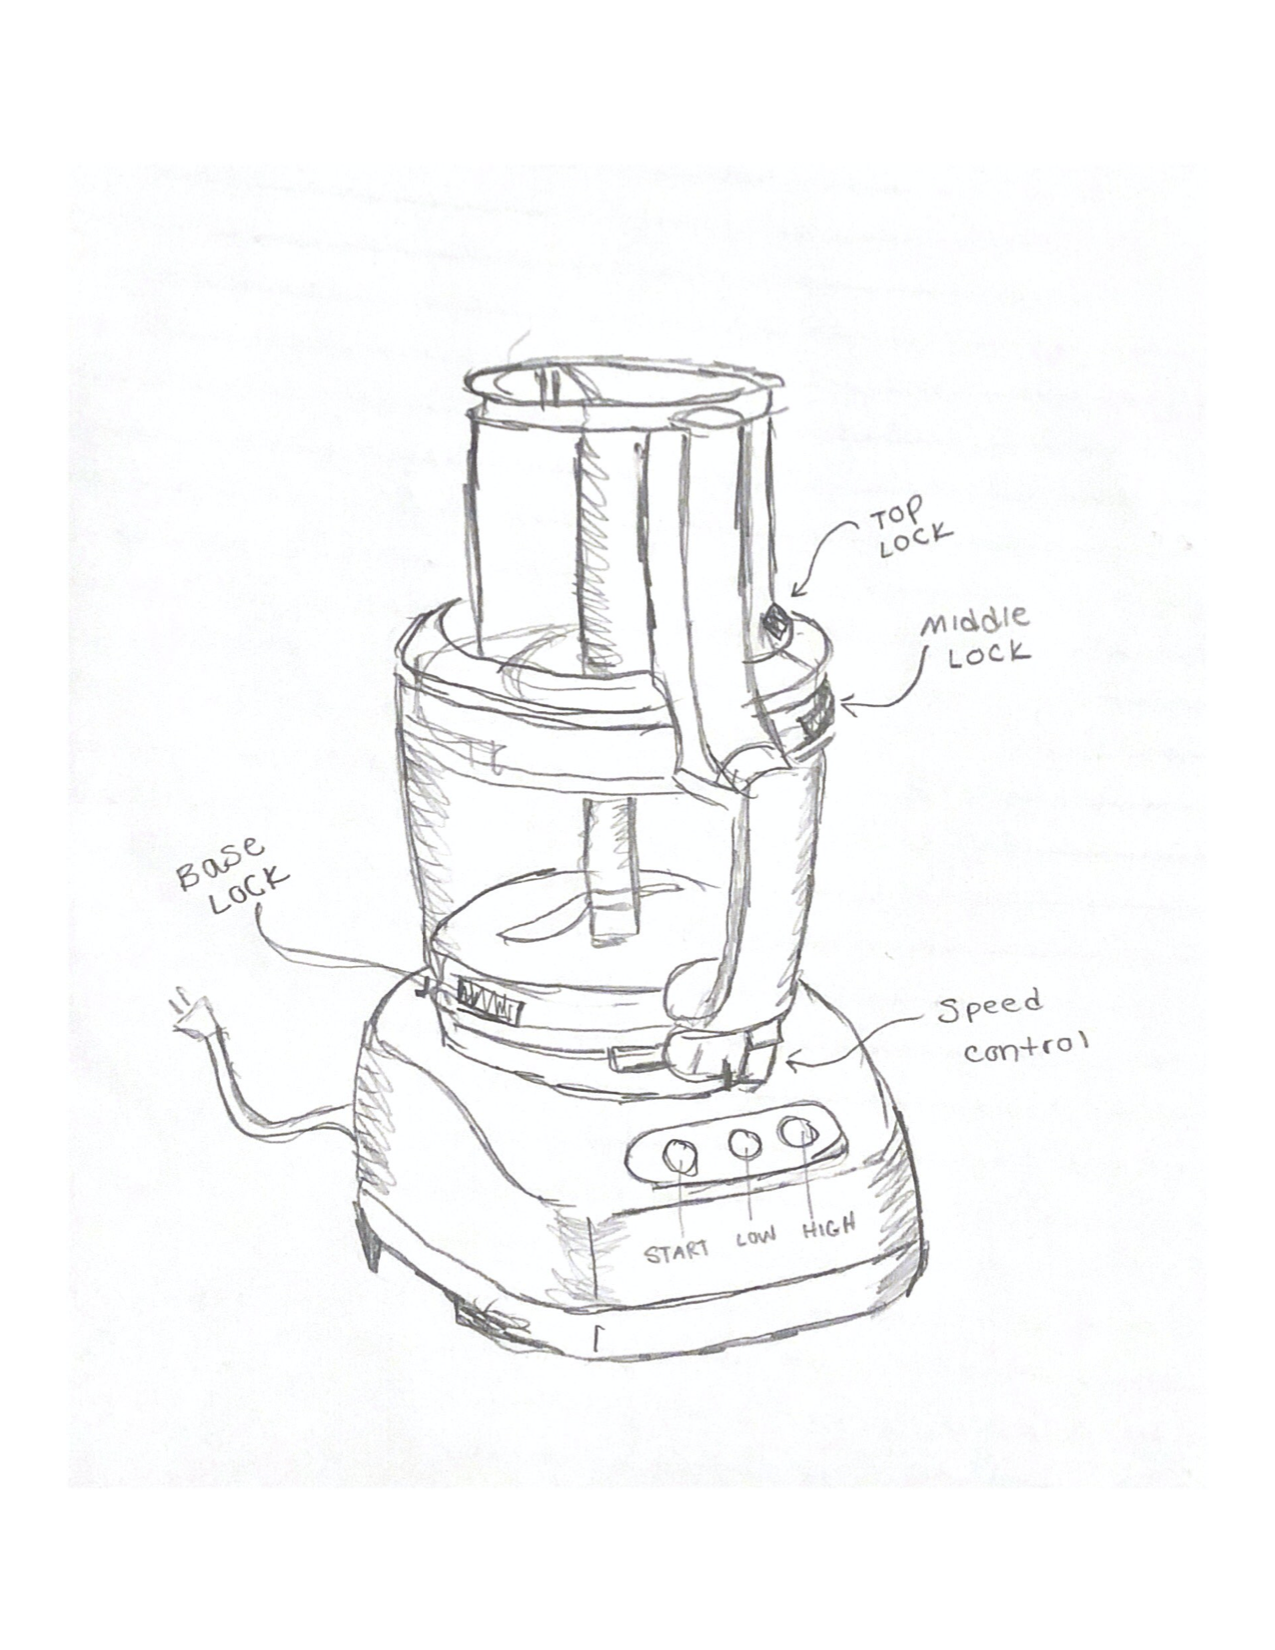 TOP
LOCK
Middle
LOCK
Base
LOCK
Speed
control
START LOW HIGH